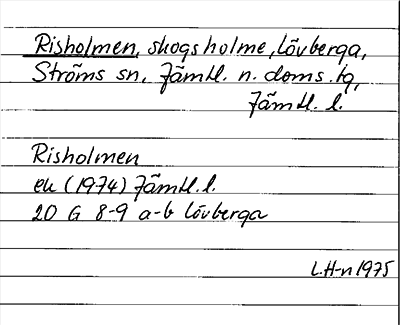 Risholmen, skogsholme, Lövberga,
Ströms sn, Jämtl. n. doms. tg,
Jämtl. l.
Risholmen
ek (1974) Jämtl. l.
20 G 8-9 a-b Lövberga
L.H-n 1975